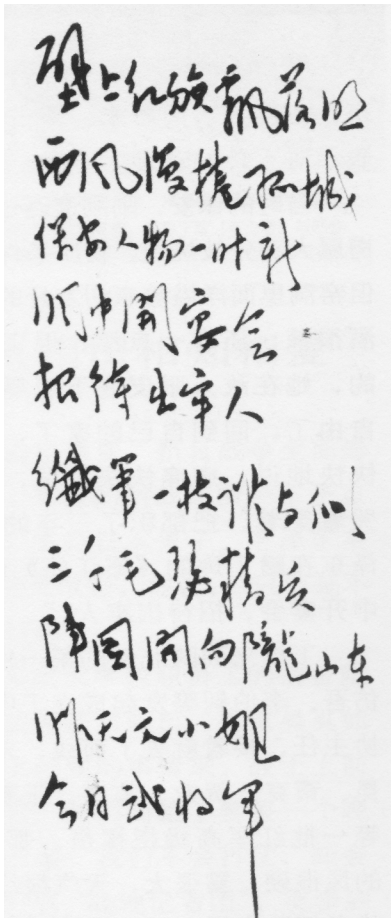 壁上红旗飘落照
西风漫捲孤城
保安人物一时新
洞中開宴会
招待出牢人
纖笔一枝谁与似
三千毛瑟精兵
陣图開向隴山东
昨天文小姐
今日武将军